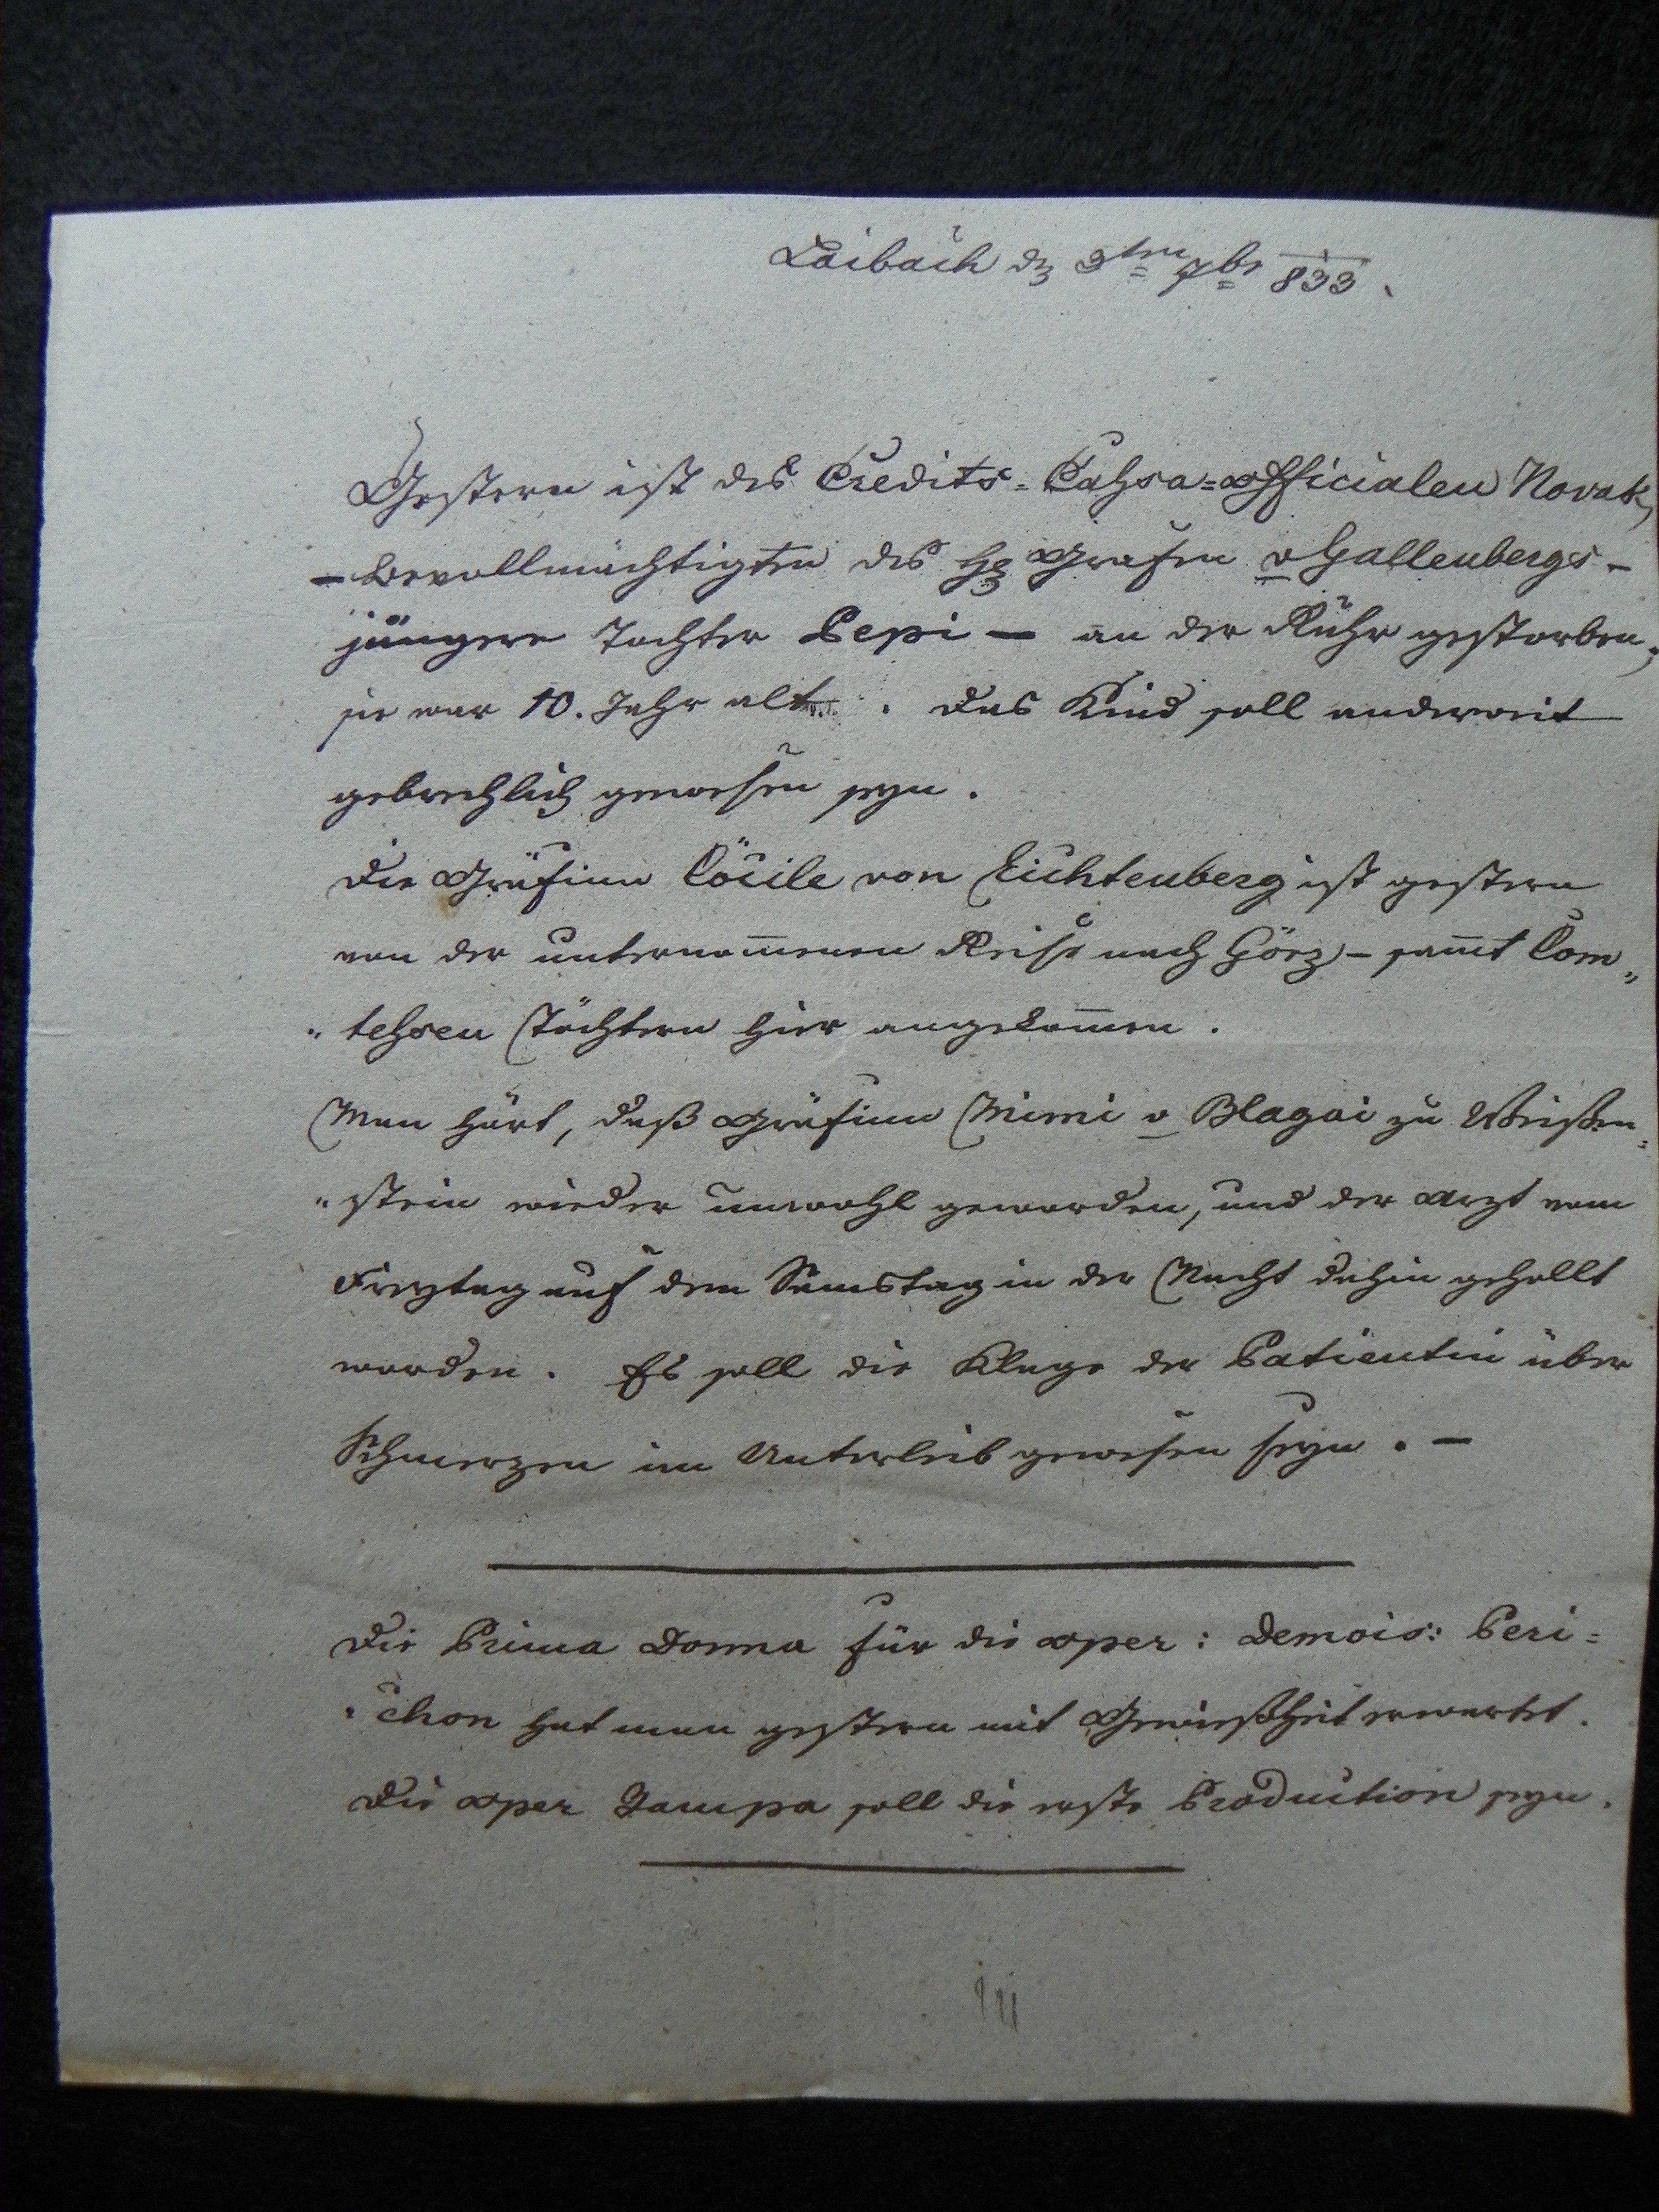 Laibach den 3ten 7br 833.
Gestern ist des Credits=Cassa=Officialen Novak,
– Bevollmächtigten des H: Grafen v Gallenbergs –
jüngere Tochter Pepi – an der Ruhr gestorben;
sie war 10. Jahr alt. Das Kind soll anderweit
gebrechlich gewesen seyn.
Die Gräfinn Cöcile von Lichtenberg ist gestern
von der unternom̅enen Reise nach Görz – sam̅t Com„
„tessen Töchtern hier angekom̅en.
Man hört, daß Gräfinn Mimi v Blagai zu Weißen„
„stein wieder unwohl geworden, und der Arzt vom
Freytag auf dem Samstag in der Nacht dahin gehollt
worden. Es soll die Klage der Patientin über
Schmerzen im Unterleib gewesen seyn. –
Die Prima Donna für die Oper: Demois: Peri=
„chon hat man gestern mit Gewießheit erwartet.
Die Oper Zampa soll die erste Production seyn.